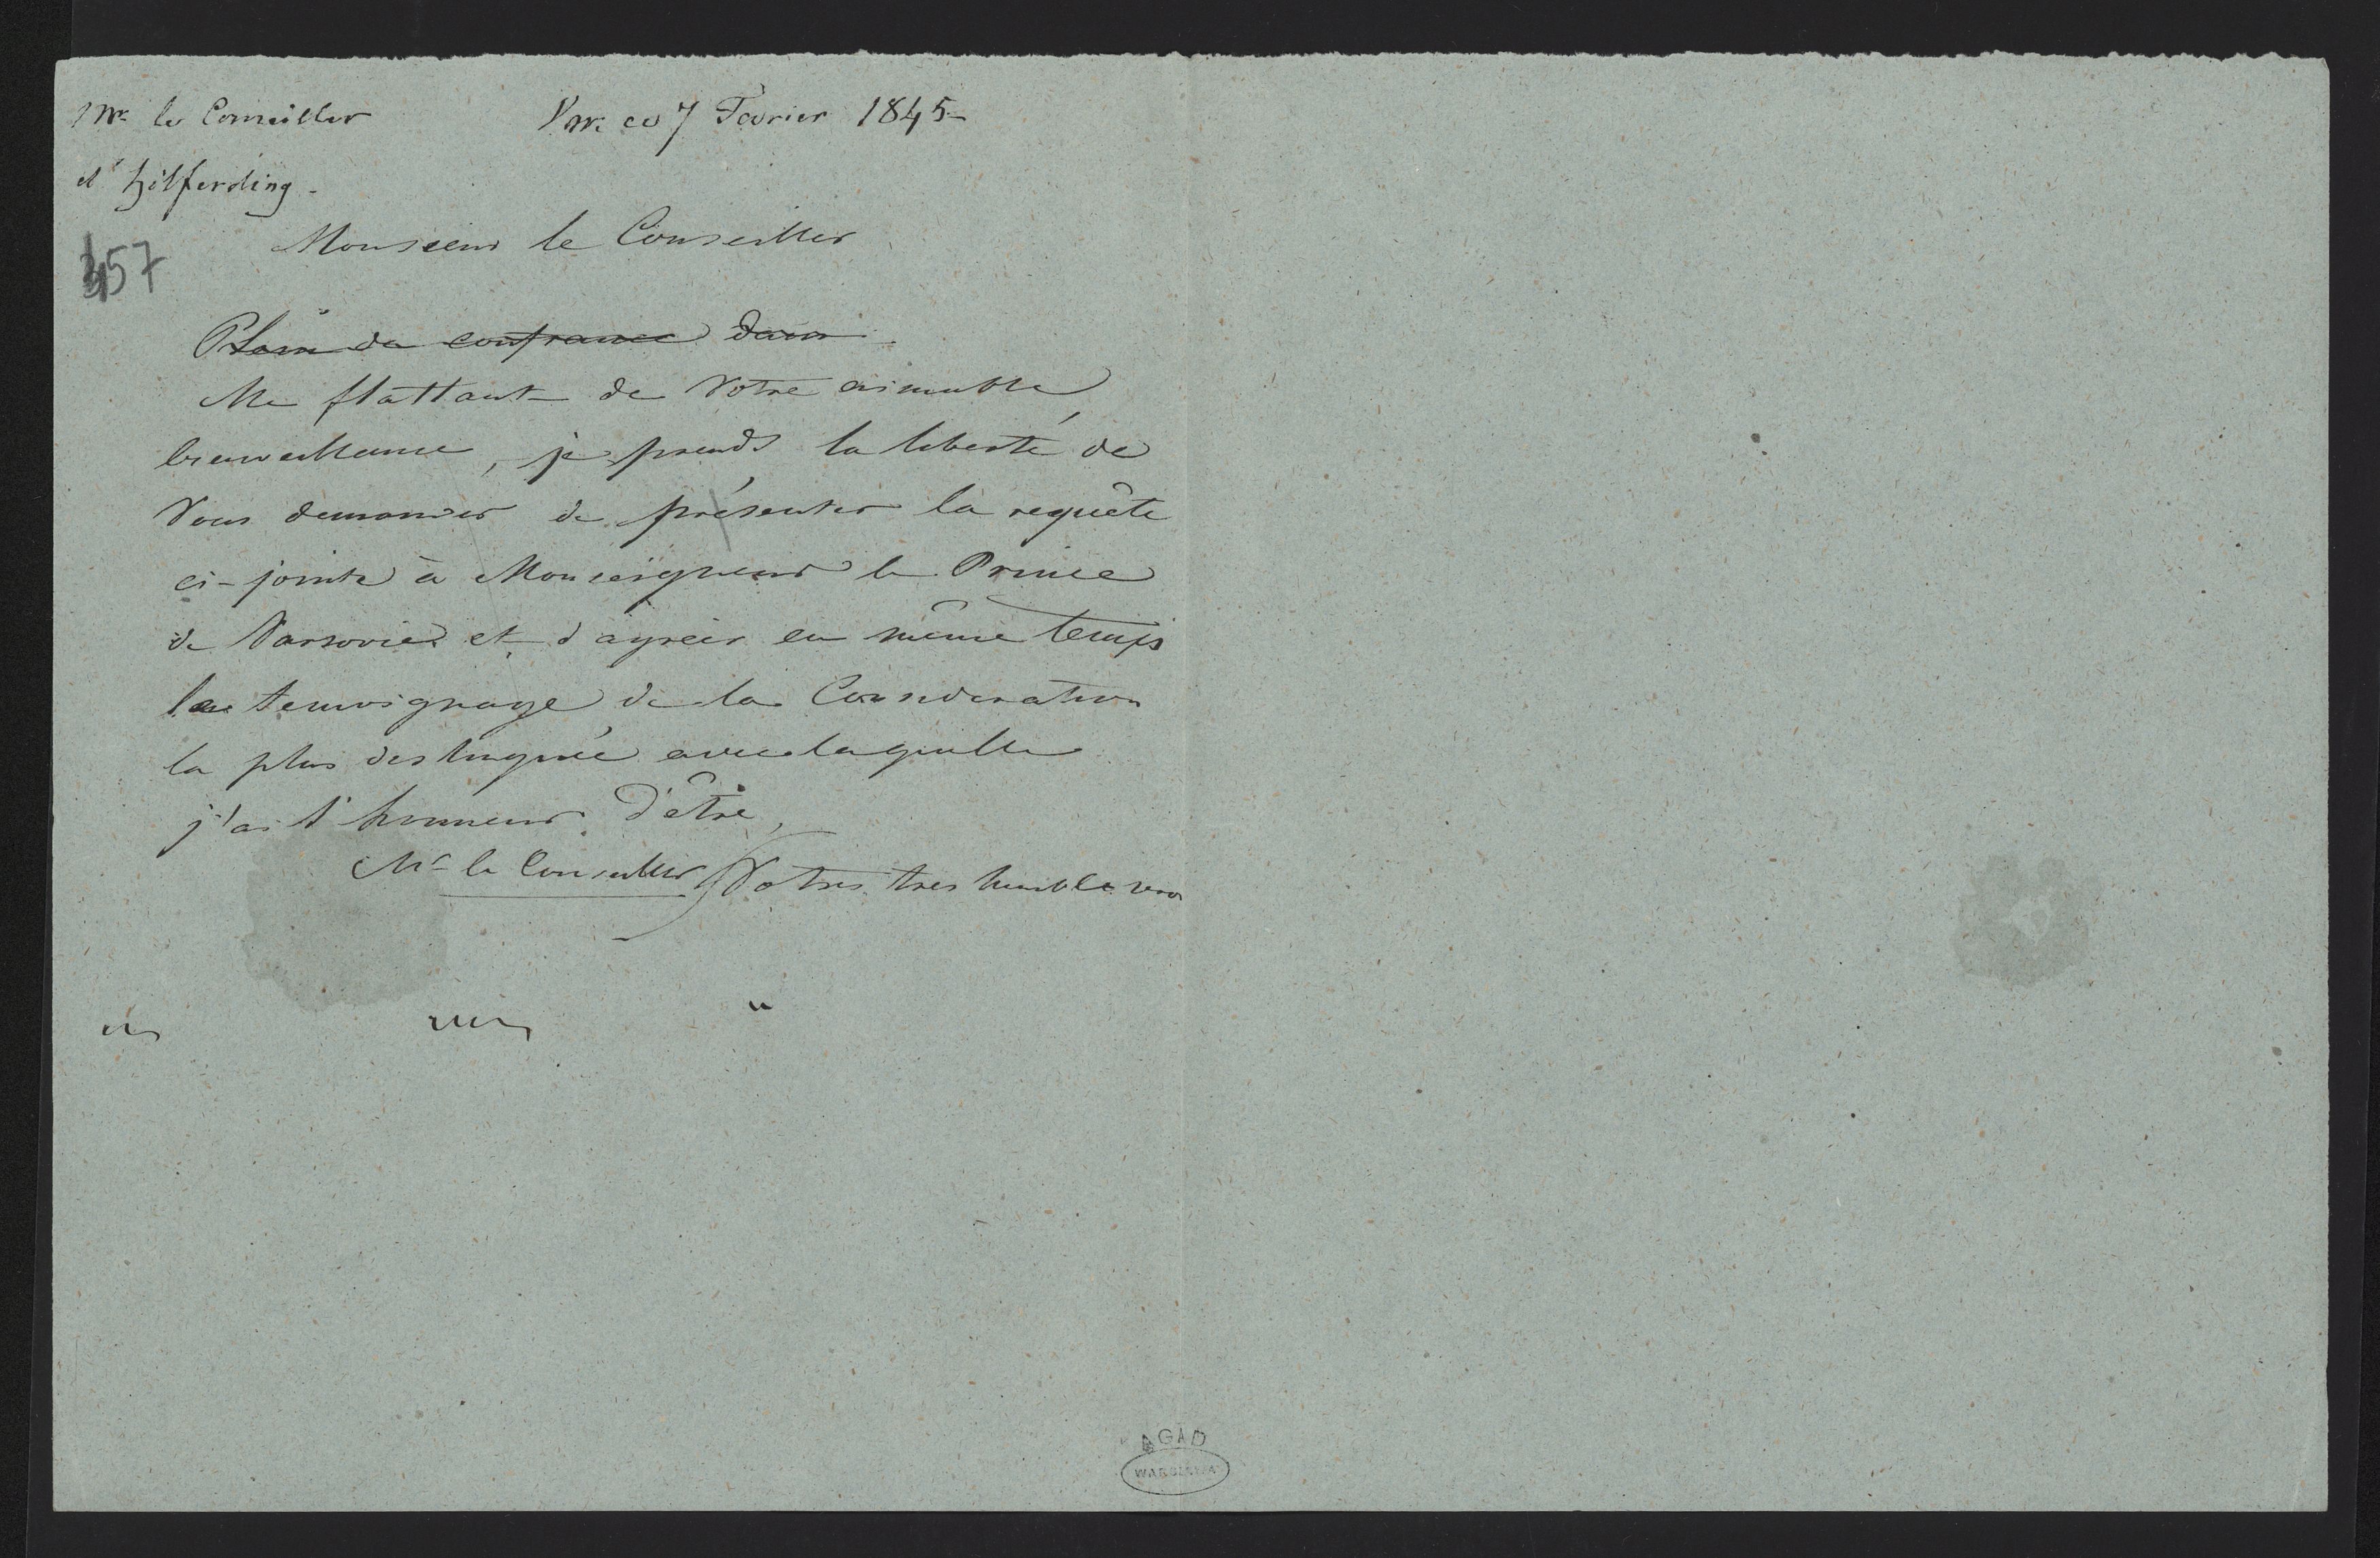 Mr le Conseiller
d'hilferding -
V m. ce 7 Fevrier 1845 -
457
Monsieur le Conseiller
Plein de confiance dans
Me flattant de Votre aimable
bienveillance, je prends la liberté de
Vous demander de présenter la requête
ci-jointe à Monseigneur le Prince
de Varsovie et d'agréer en même temps
le temoignage de la Consideration
la plus distinguée avec laquelle
j'ai l'honneur d'être,
Mr le Conseiller Votre tres humble serv
AGAD
WARSZAWA